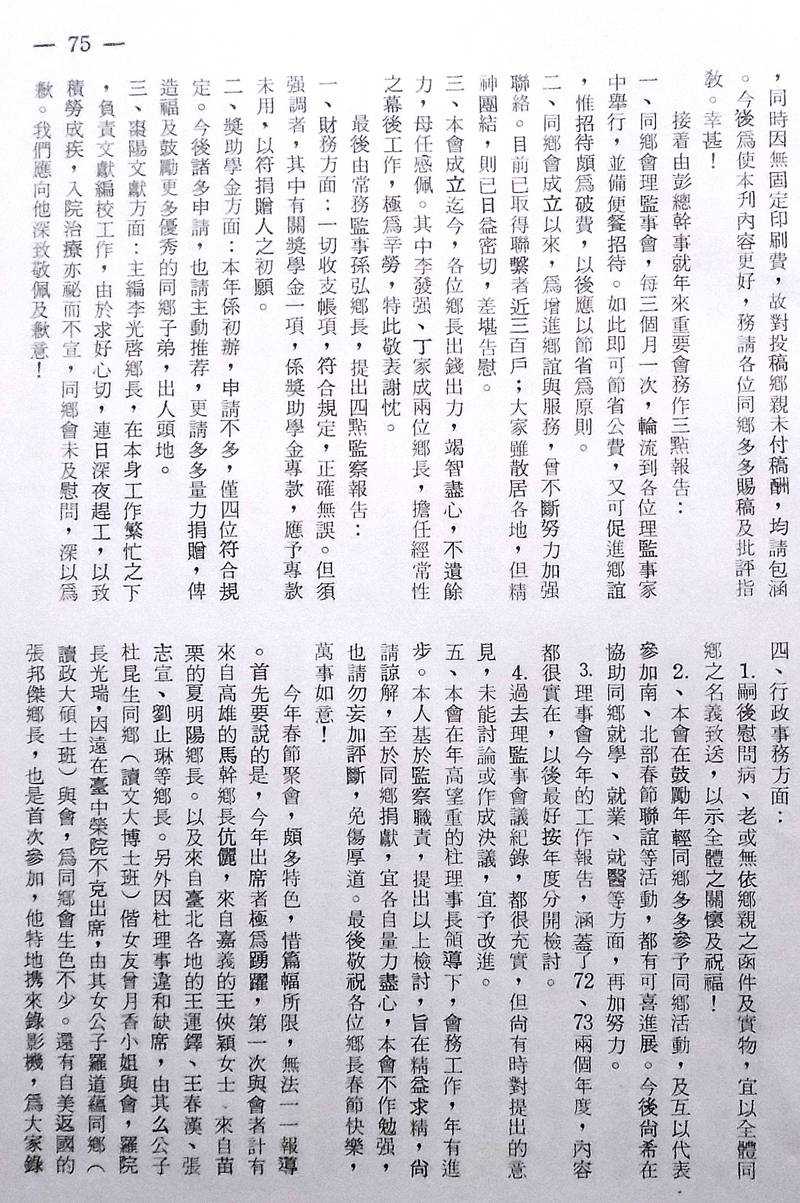 — 75 —
，同時因無固定印刷費，故對投稿鄉親未付稿酬，均請包涵
。今後爲使本刊內容更好，務請各位同鄉多多賜稿及批評指
敎。幸甚！
接着由彭總幹事就年來重要會務作三點報告：
一、同鄉會理監事會，每三個月一次，輪流到各位理監事家
中舉行，並備便餐招待。如此即可節省公費，又可促進鄉誼
，惟招待頗爲破費，以後應以節省爲原則。
二、同鄉會成立以來，爲增進鄉誼與服務，曾不斷努力加强
聯絡。目前已取得聯繫者近三百戶；大家雖散居各地，但精
神團結，則已日益密切，差堪告慰。
三、本會成立迄今，各位鄉長出錢出力，竭智盡心，不遺餘
力，毋任感佩。其中李發强、丁家成兩位鄉長，擔任經常性
之幕後工作，極爲辛勞，特此敬表謝忱。
最後由常務監事孫弘鄉長，提出四點監察報告：
一、財務方面：一切收支帳項，符合規定，正確無誤。但須
强調者，其中有關獎學金一項，係獎助學金專款，應予專款
未用，以符捐贈人之初願。
二、獎助學金方面：本年係初辦，申請不多，僅四位符合規
定。今後諸多申請，也請主動推荐，更請多多量力捐贈，俾
造福及鼓勵更多優秀的同鄉子弟，出人頭地。
三、棗陽文獻方面：主編李光啓鄉長，在本身工作繁忙之下
，負責文獻編校工作，由於求好心切，連日深夜趕工，以致
積勞成疾，入院治療亦祕而不宣，同鄉會未及慰問，深以爲
歉。我們應向他深致敬佩及歉意！
四、行政事務方面：
1.嗣後慰問病、老或無依鄉親之函件及實物，宜以全體同
鄉之名義致送，以示全體之關懷及祝福！
2.、本會在鼓勵年輕同鄉多多參予同鄉活動，及互以代表
參加南、北部春節聯誼等活動，都有可喜進展。今後尚希在
協助同鄉就學、就業、就醫等方面，再加努力。
3.理事會今年的工作報告，涵蓋了72、73兩個年度，內容
都很實在，以後最好按年度分開檢討。
4.過去理監事會議紀錄，都很充實，但尚有時對提出的意
見，未能討論或作成決議，宜予改進。
五、本會在年高望重的杜理事長領導下，會務工作，年有進
步。本人基於監察職責，提出以上檢討，旨在精益求精，尚
請諒解，至於同鄉捐獻，宜各自量力盡心，本會不作勉强，
也請勿妄加評斷，免傷厚道。最後敬祝各位鄉長春節快樂，
萬事如意！
今年春節聚會，頗多特色，惜篇幅所限，無法一一報導
。首先要說的是，今年出席者極爲踴躍，第一次與會者計有
來自高雄的馬幹鄉長伉儷，來自嘉義的王俠穎女士、來自苗
栗的夏明陽鄉長。以及來自臺北各地的王運鐸、王春漢、張
志宣、劉止琳等鄉長。另外因杜理事違和缺席，由其么公子
杜昆生同鄉（讀文大博士班）偕女友曾月香小姐與會，羅院
長光瑞，因遠在臺中榮院不克出席，由其女公子羅道蘊同鄉（
讀政大碩士班）與會，爲同鄉會生色不少。還有自美返國的
張邦傑鄉長，也是首次參加，他特地携來錄影機，爲大家錄